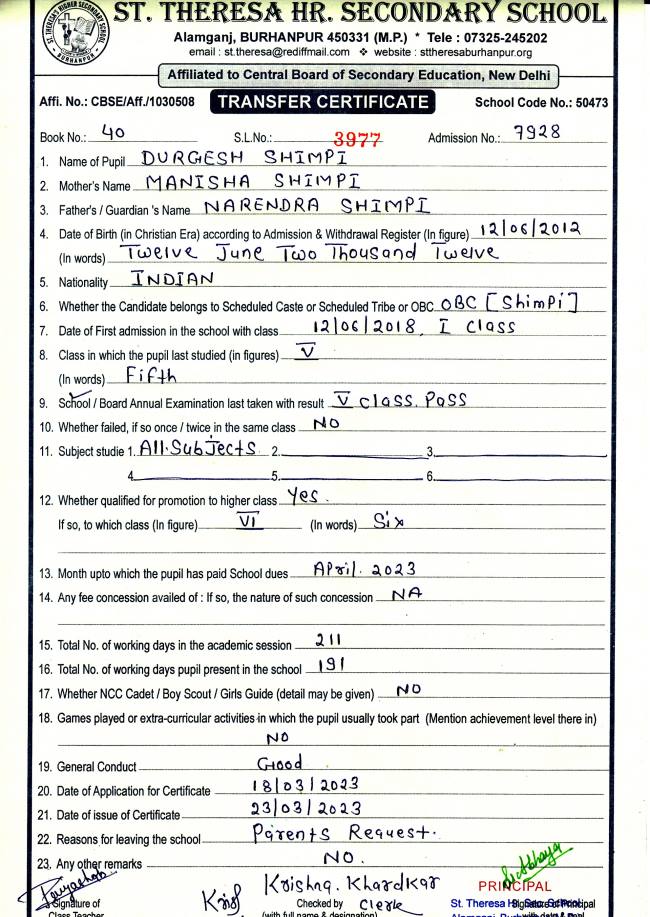 ST. THERESA HR. SECONDARY SCHOOL
Alamganj, BURHANPUR 450331 (M.P.) * Tele : 07325-245202
email : st.theresa@rediffmail.com ❖ website : sttheresaburhanpur.org
Affiliated to Central Board of Secondary Education, New Delhi
Affi. No.: CBSE/Aff./1030508 TRANSFER CERTIFICATE School Code No.: 50473
Book No.: 40 S.L.No.: 3977 Admission No.: 7928
1. Name of Pupil DURGESH SHIMPI
2. Mother's Name MANISHA SHIMPI
3. Father's / Guardian 's Name NARENDRA SHIMPI
4. Date of Birth (in Christian Era) according to Admission & Withdrawal Register (In figure) 12/06/2012
(In words) Twelve June Two Thousand Twelve
5. Nationality INDIAN
6. Whether the Candidate belongs to Scheduled Caste or Scheduled Tribe or OBC OBC [Shimpi]
7. Date of First admission in the school with class 12/06/2018, I Class
8. Class in which the pupil last studied (in figures) V
(In words) Fifth
9. School / Board Annual Examination last taken with result V class. Pass
10. Whether failed, if so once / twice in the same class NO
11. Subject studie 1. All.Subjects 2. 3.
4. 5. 6.
12. Whether qualified for promotion to higher class Yes.
If so, to which class (In figure) VI (In words) Six
13. Month upto which the pupil has paid School dues April. 2023
14. Any fee concession availed of : If so, the nature of such concession NA
15. Total No. of working days in the academic session 211
16. Total No. of working days pupil present in the school 191
17. Whether NCC Cadet / Boy Scout / Girls Guide (detail may be given) NO
18. Games played or extra-curricular activities in which the pupil usually took part (Mention achievement level there in)
NO
19. General Conduct Good
20. Date of Application for Certificate 18/03/2023
21. Date of issue of Certificate 23/03/2023
22. Reasons for leaving the school Parents Request.
23. Any other remarks NO.
Krishna. Khardkar PRINCIPAL
Signature of Checked by Clerk St. Theresa Signature of Principal
Class Teacher (with full name & designation)